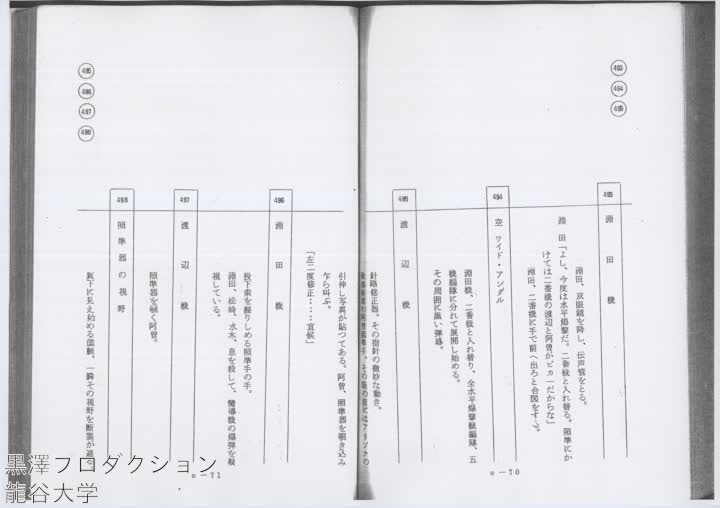 493
494
495
493
淵田機
淵田、双眼鏡を降し、伝声管をとる。
淵田「よし、今度は水平爆撃だ。二番機と入れ替る。照準にか
けては二番機の渡辺と阿曽がピカ一だからな」
淵田、二番機に手で前へ出ろと合図をする。
494
空 ワイド・アングル
淵田機、二番機と入れ替り、全水平爆撃機編隊、五
機編隊に分れて展開し始める。
その周囲に黒い弾幕。
495
渡辺機
針路修正器。その指針の微妙な動き。
e-70
495
496
497
498
引伸し写真が貼つてある。阿曽、照準器を覗き込み
乍ら叫ぶ。
「左二度修正・・・・宜候」
496
淵田機
投下索を握りしめる照準手の手。
淵田、松崎、水木、息を殺して、嚮導機の爆弾を凝
視している。
497
渡辺機
照準器を覗く阿曽。
498
照準器の視野
眼下に見え始める艦艇、一瞬その視野を断雲が遮る。
e-71
黒澤プロダクション
龍谷大学